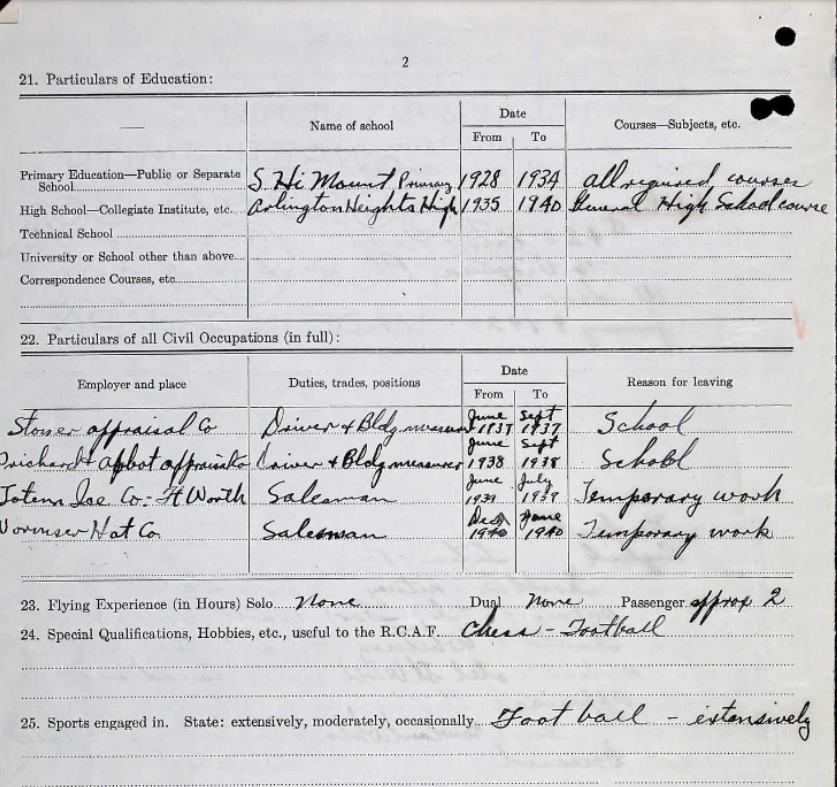 2
21. Particulars of Education:
— Name of school Date Courses—Subjects, etc.
From To
Primary Education—Public or Separate
School S. Hi Mount Primary 1928 1934 all required courses
High School—Collegiate Institute, etc. Arlington Heights High 1935 1940 General High School course
Technical School
University or School other than above
Correspondence Courses, etc.
22. Particulars of all Civil Occupations (in full):
Employer and place Duties, trades, positions Date Reason for leaving
From To
Stoner appraisal Co Driver & Bldg measurer June 1937 Sept 1937 School
Prichard & Abbot Driver & Bldg measurer June 1938 Sept 1938 School
Totem Ice Co.- Ft Worth Salesman June 1939 July 1939 Temporary work
Hat Co. Salesman 1940 June 1940 Temporary work
23. Flying Experience (in Hours) Solo None Dual None Passenger approx 2
24. Special Qualifications, Hobbies, etc., useful to the R.C.A.F. Chess - Football
25. Sports engaged in. State: extensively, moderately, occasionally Foot ball - extensively